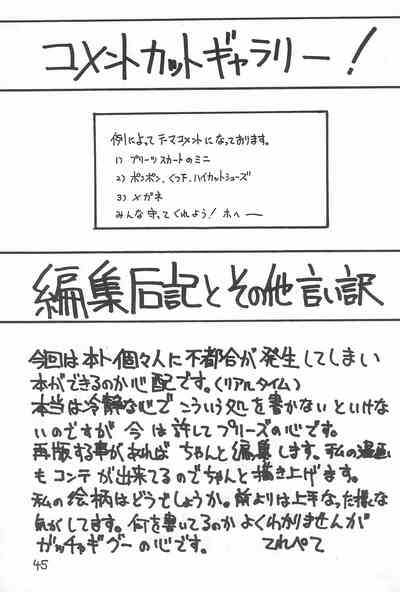 コメントカットギャラリー!
例によってテーマコメントになっております。
1) プリーツスカートのミニ
2) ポンポン、くつ下、ハイカットシューズ
3) メガネ
みんな守ってくれよう! ホヘ——
編集后記とその他言い訳
今回は本ト個々人に不都合が発生してしまい
本ができるのか心配です。(リアルタイム)
本当は冷静な心でこういう処を書かないといけな
いのですが今は許してプリーズの心です。
再版する事があればちゃんと編集します。私の漫画
もコンテが出来てるのでちゃんと描き上げます。
私の絵柄はどうでしょうか。前よりは上手なった様な
気がしてます。何を書いてるのかよくわかりませんが
ガッチャギグーの心です。 てれぺて
45